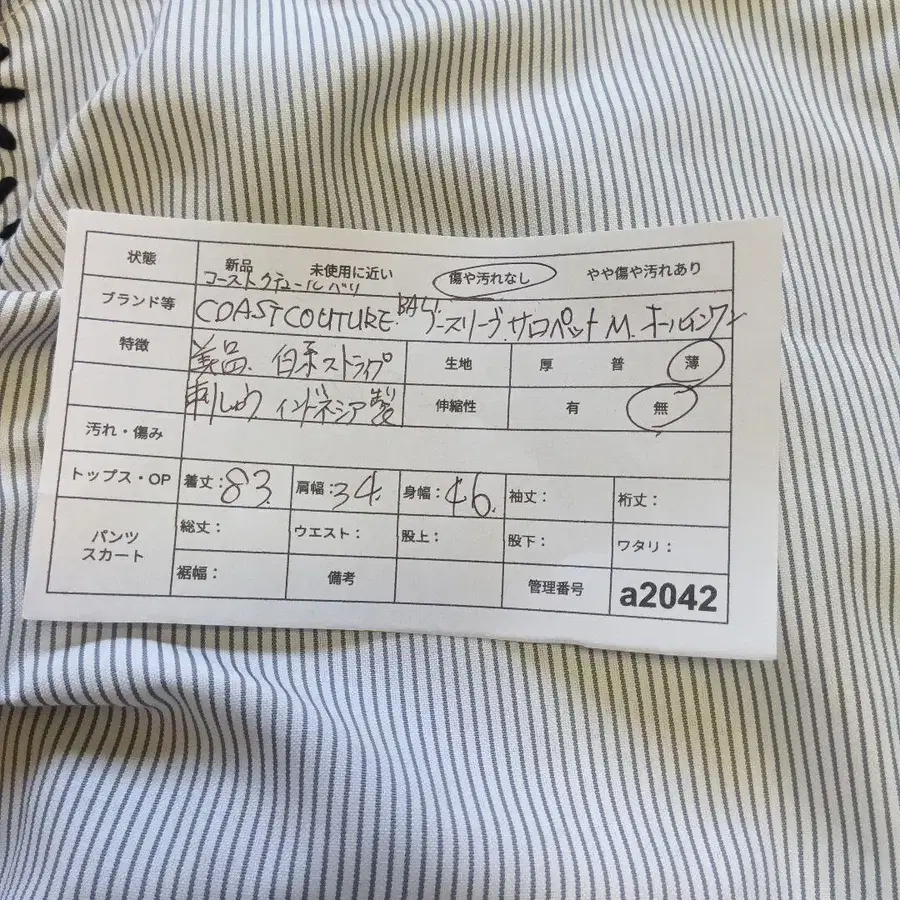 状態 新品 未使用に近い 傷や汚れなし やや傷や汚れあり
コーストクチュールバリ
ブランド等 COASTCOUTURE.BALI. ノースリーブ.サロペット M. オールインワン
特徴 美品. 白系ストライプ 生地 厚 普 薄
刺しゅう インドネシア製 伸縮性 有 無
汚れ・傷み
トップス・OP 着丈:83. 肩幅:34. 身幅:46. 袖丈: 裄丈:
パンツ スカート 総丈: ウエスト: 股上: 股下: ワタリ:
裾幅: 備考 管理番号 a2042